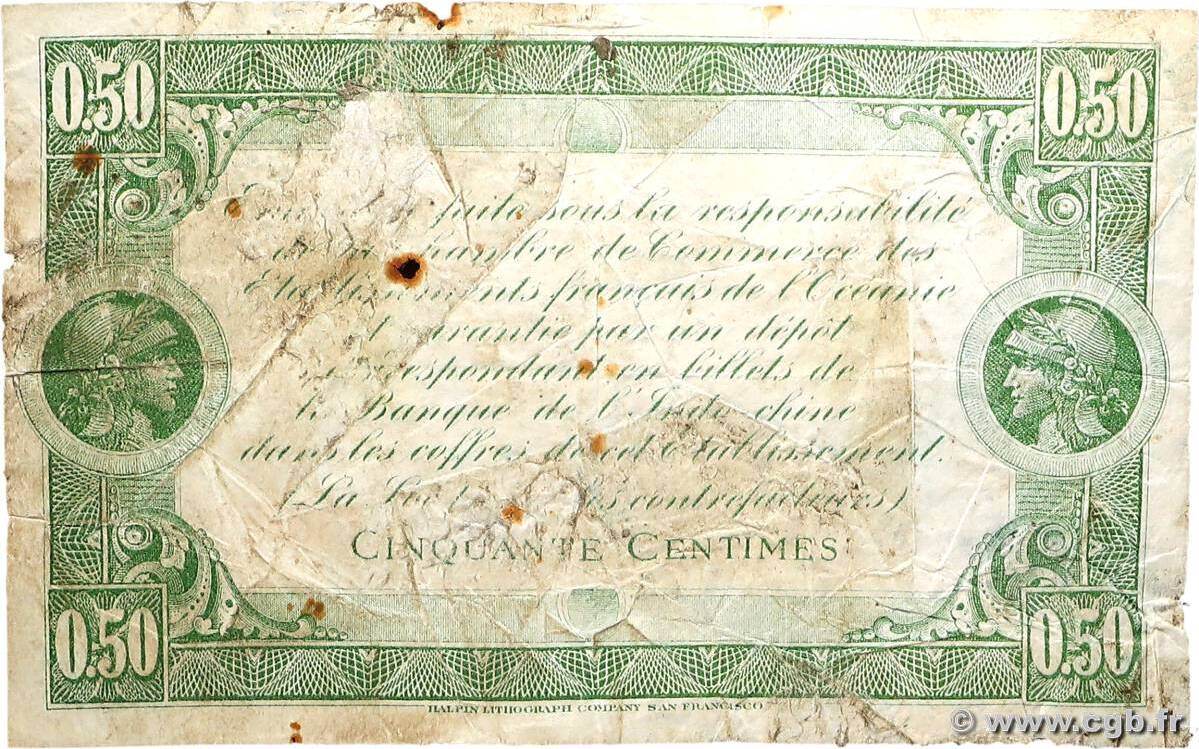 0.50 0.50
faite sous la responsabilité
Chambre de Commerce des
Etablissements français de l'Océanie
et garantie par un dépôt
correspondant en billets de
la Banque de l'Indo-chine
dans les coffres de cet Etablissement.
(La Loi les contrefacteurs)
CINQUANTE CENTIMES
0.50 0.50
HALPIN LITHOGRAPH COMPANY SAN FRANCISCO
© www.cgb.fr